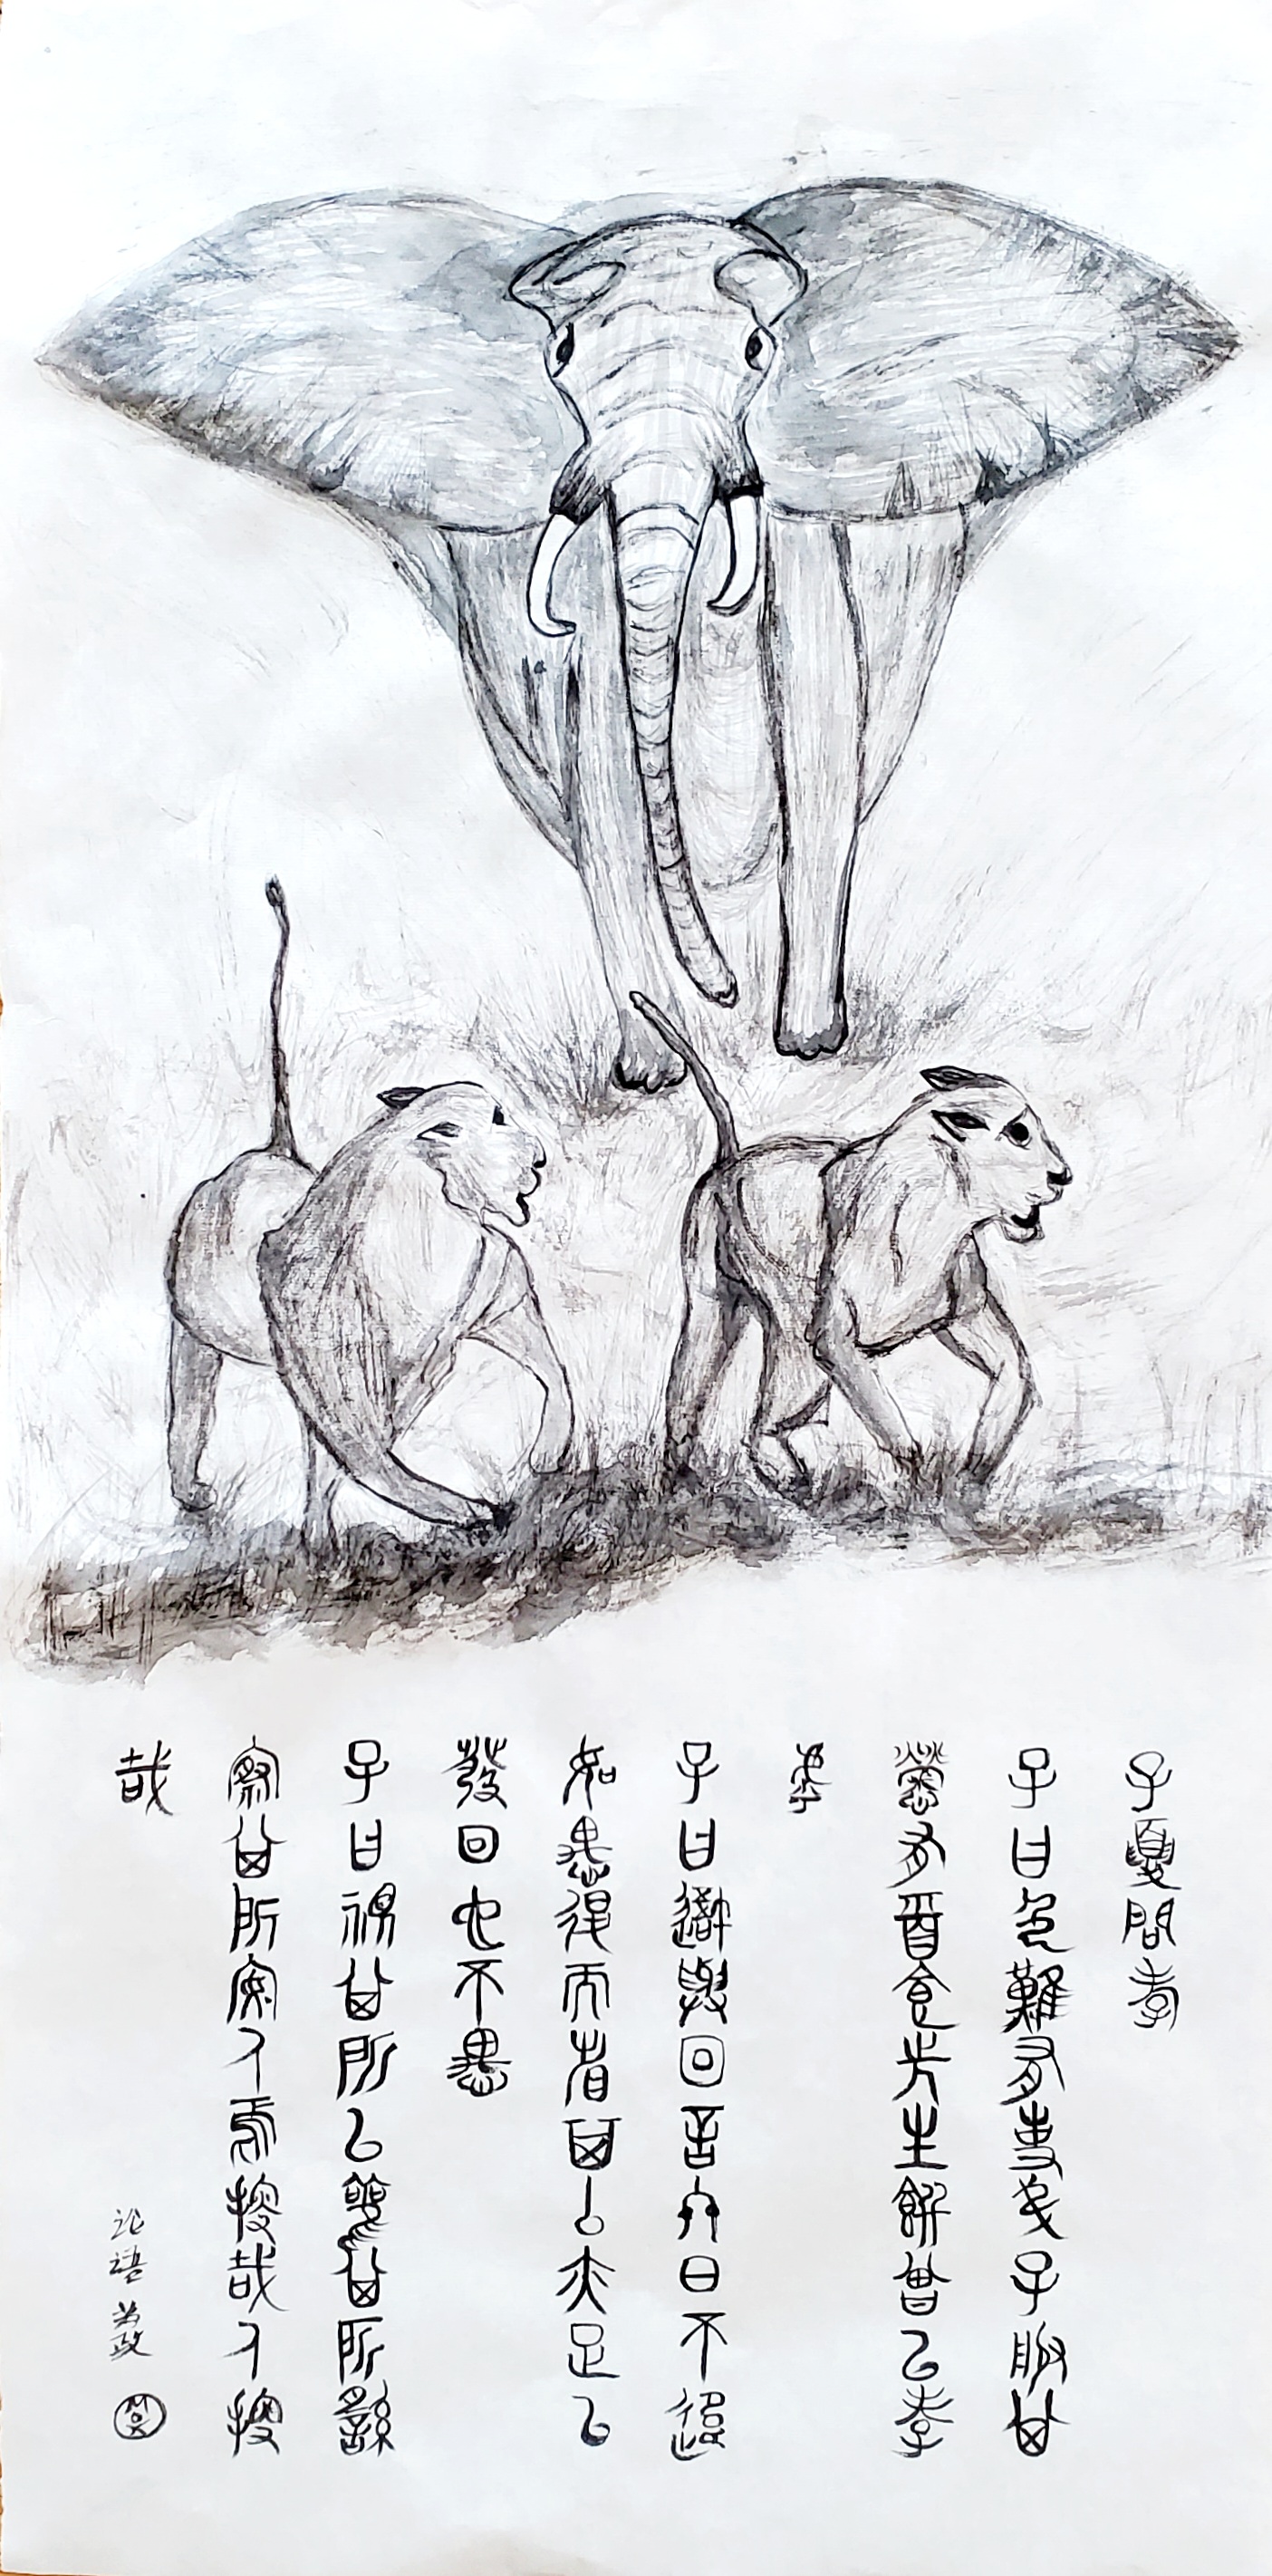 子夏問孝
子曰色難有事弟子服其
勞有酒食先生饌曾以孝
乎
子曰吾與回言終日不違
如愚退而省其私亦足以
發回也不愚
子曰視其所以觀其所繇
察其所安人焉搜哉人搜
哉
論語為政